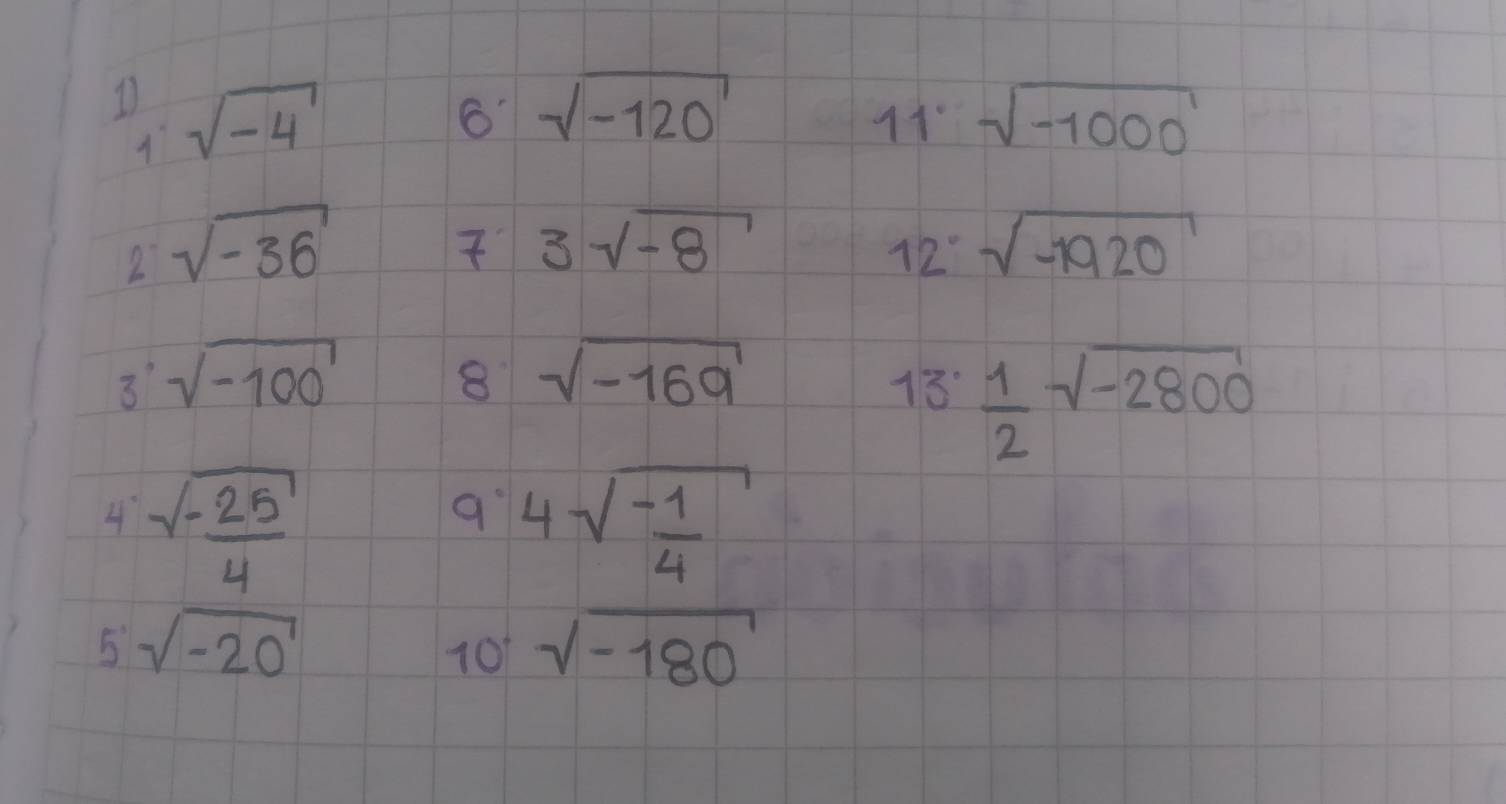 1)
1. √-4
2. √-36
3. √-100
4. √-25/4
5. √-20
6. √-120
7. 3√-8
8. √-169
9. 4√-1/4
10. √-180
11. √-1000
12. √-1920
13. 1/2 √-2800